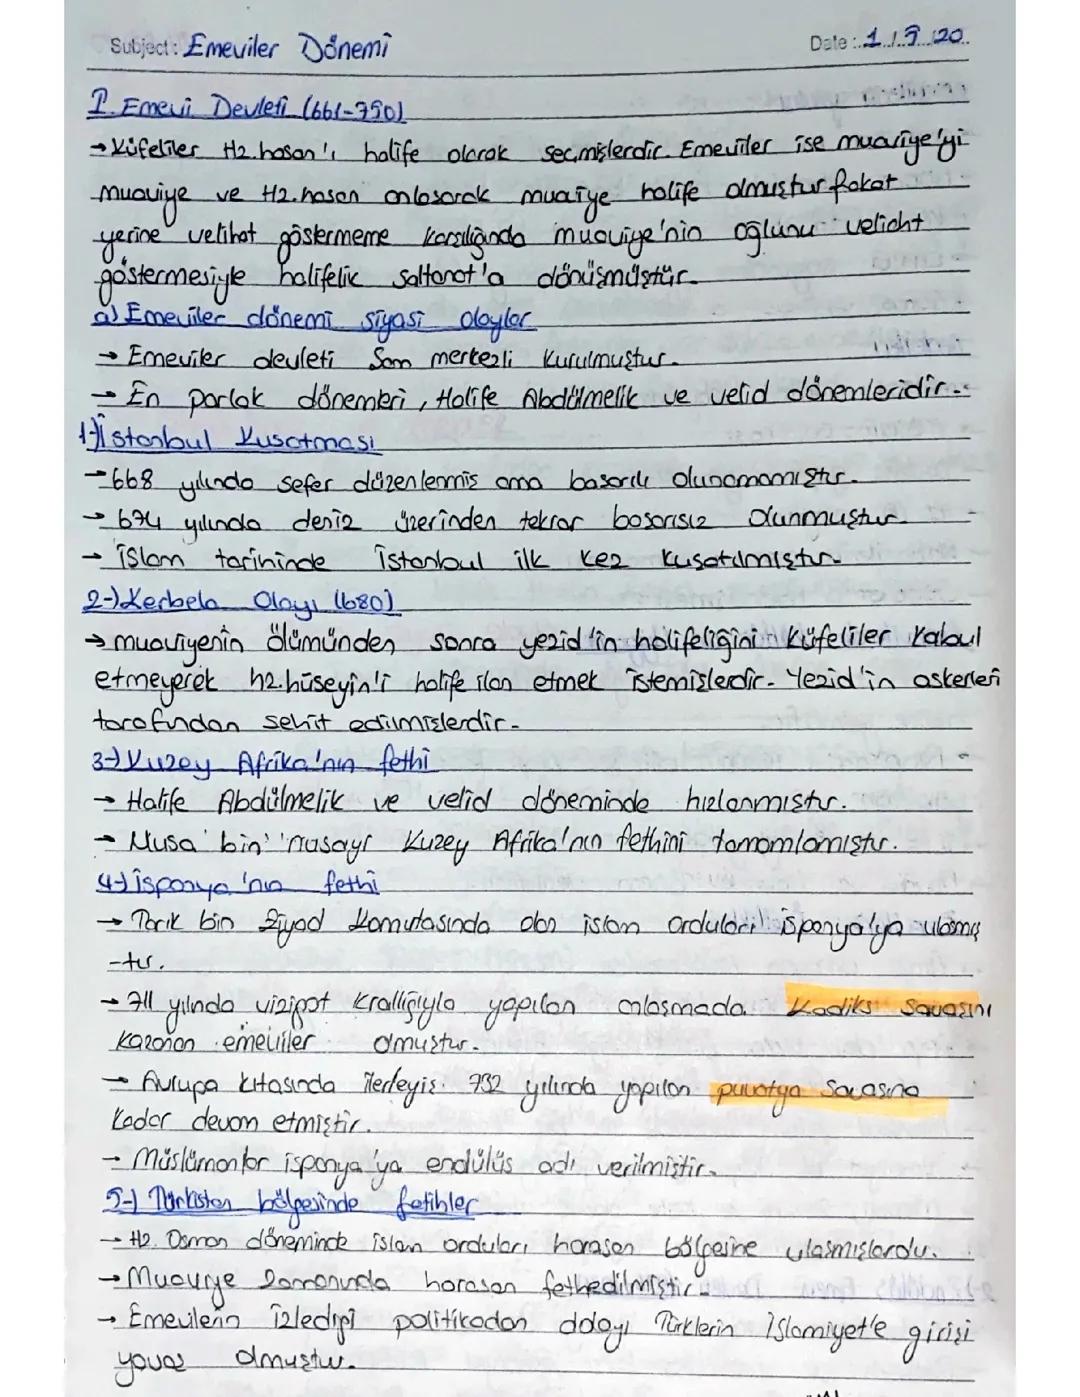 Subject: Emeviler Dönemi Date: 1./.9./20..
I. Emevi Devleti (661-750)
→ Kûfeliler Hz. hasan'ı halife olarak seçmişlerdir. Emeviler ise muaviye'yi
muaviye ve Hz. hasan anlaşarak muaviye halife olmuştur fakat
yerine velihat göstermeme karşılığında muaviye'nin oğlunu veliaht
göstermesiyle halifelik saltanat'a dönüşmüştür.
a) Emeviler dönemi siyasi olaylar
→ Emeviler devleti Şam merkezli kurulmuştur.
→ En parlak dönemleri, Halife Abdülmelik ve velid dönemleridir.
1-) İstanbul Kuşatması
→ 668 yılında sefer düzenlenmiş ama başarılı olunamamıştır.
→ 674 yılında deniz üzerinden tekrar başarısız olunmuştur.
→ İslam tarihinde İstanbul ilk kez kuşatılmıştır.
2-) Kerbela Olayı (680)
→ muaviyenin ölümünden sonra yezid'in halifeliğini Kûfeliler Kabul
etmeyerek hz. hüseyin'i halife ilan etmek istemişlerdir. Yezid'in askerleri
tarafından şehit edilmişlerdir.
3-) Kuzey Afrika'nın fethi
→ Halife Abdülmelik ve velid döneminde hızlanmıştır.
→ Musa bin nusayr Kuzey Afrika'nın fethini tamamlamıştır.
4-) İspanya'nın fethi
→ Tarık bin Ziyad Komutasında olan islam orduları İspanya'ya ulaşmış
-tır.
→ 711 yılında vizigot Krallığıyla yapılan anlaşmada Kadiks Savaşını
Kazanan emeviler olmuştur.
→ Avrupa kıtasında ilerleyiş 732 yılında yapılan puvatya Savaşına
kadar devam etmiştir.
→ Müslümanlar İspanya'ya endülüs adı verilmiştir.
5-) Türkistan bölgesinde fetihler
→ Hz. Osman döneminde islam orduları horasan bölgesine ulaşmışlardı.
→ Muaviye zamanında horasan fethedilmiştir.
→ Emevilerin izlediği politikadan dolayı Türklerin İslamiyet'e girişi
yavaş olmuştur.